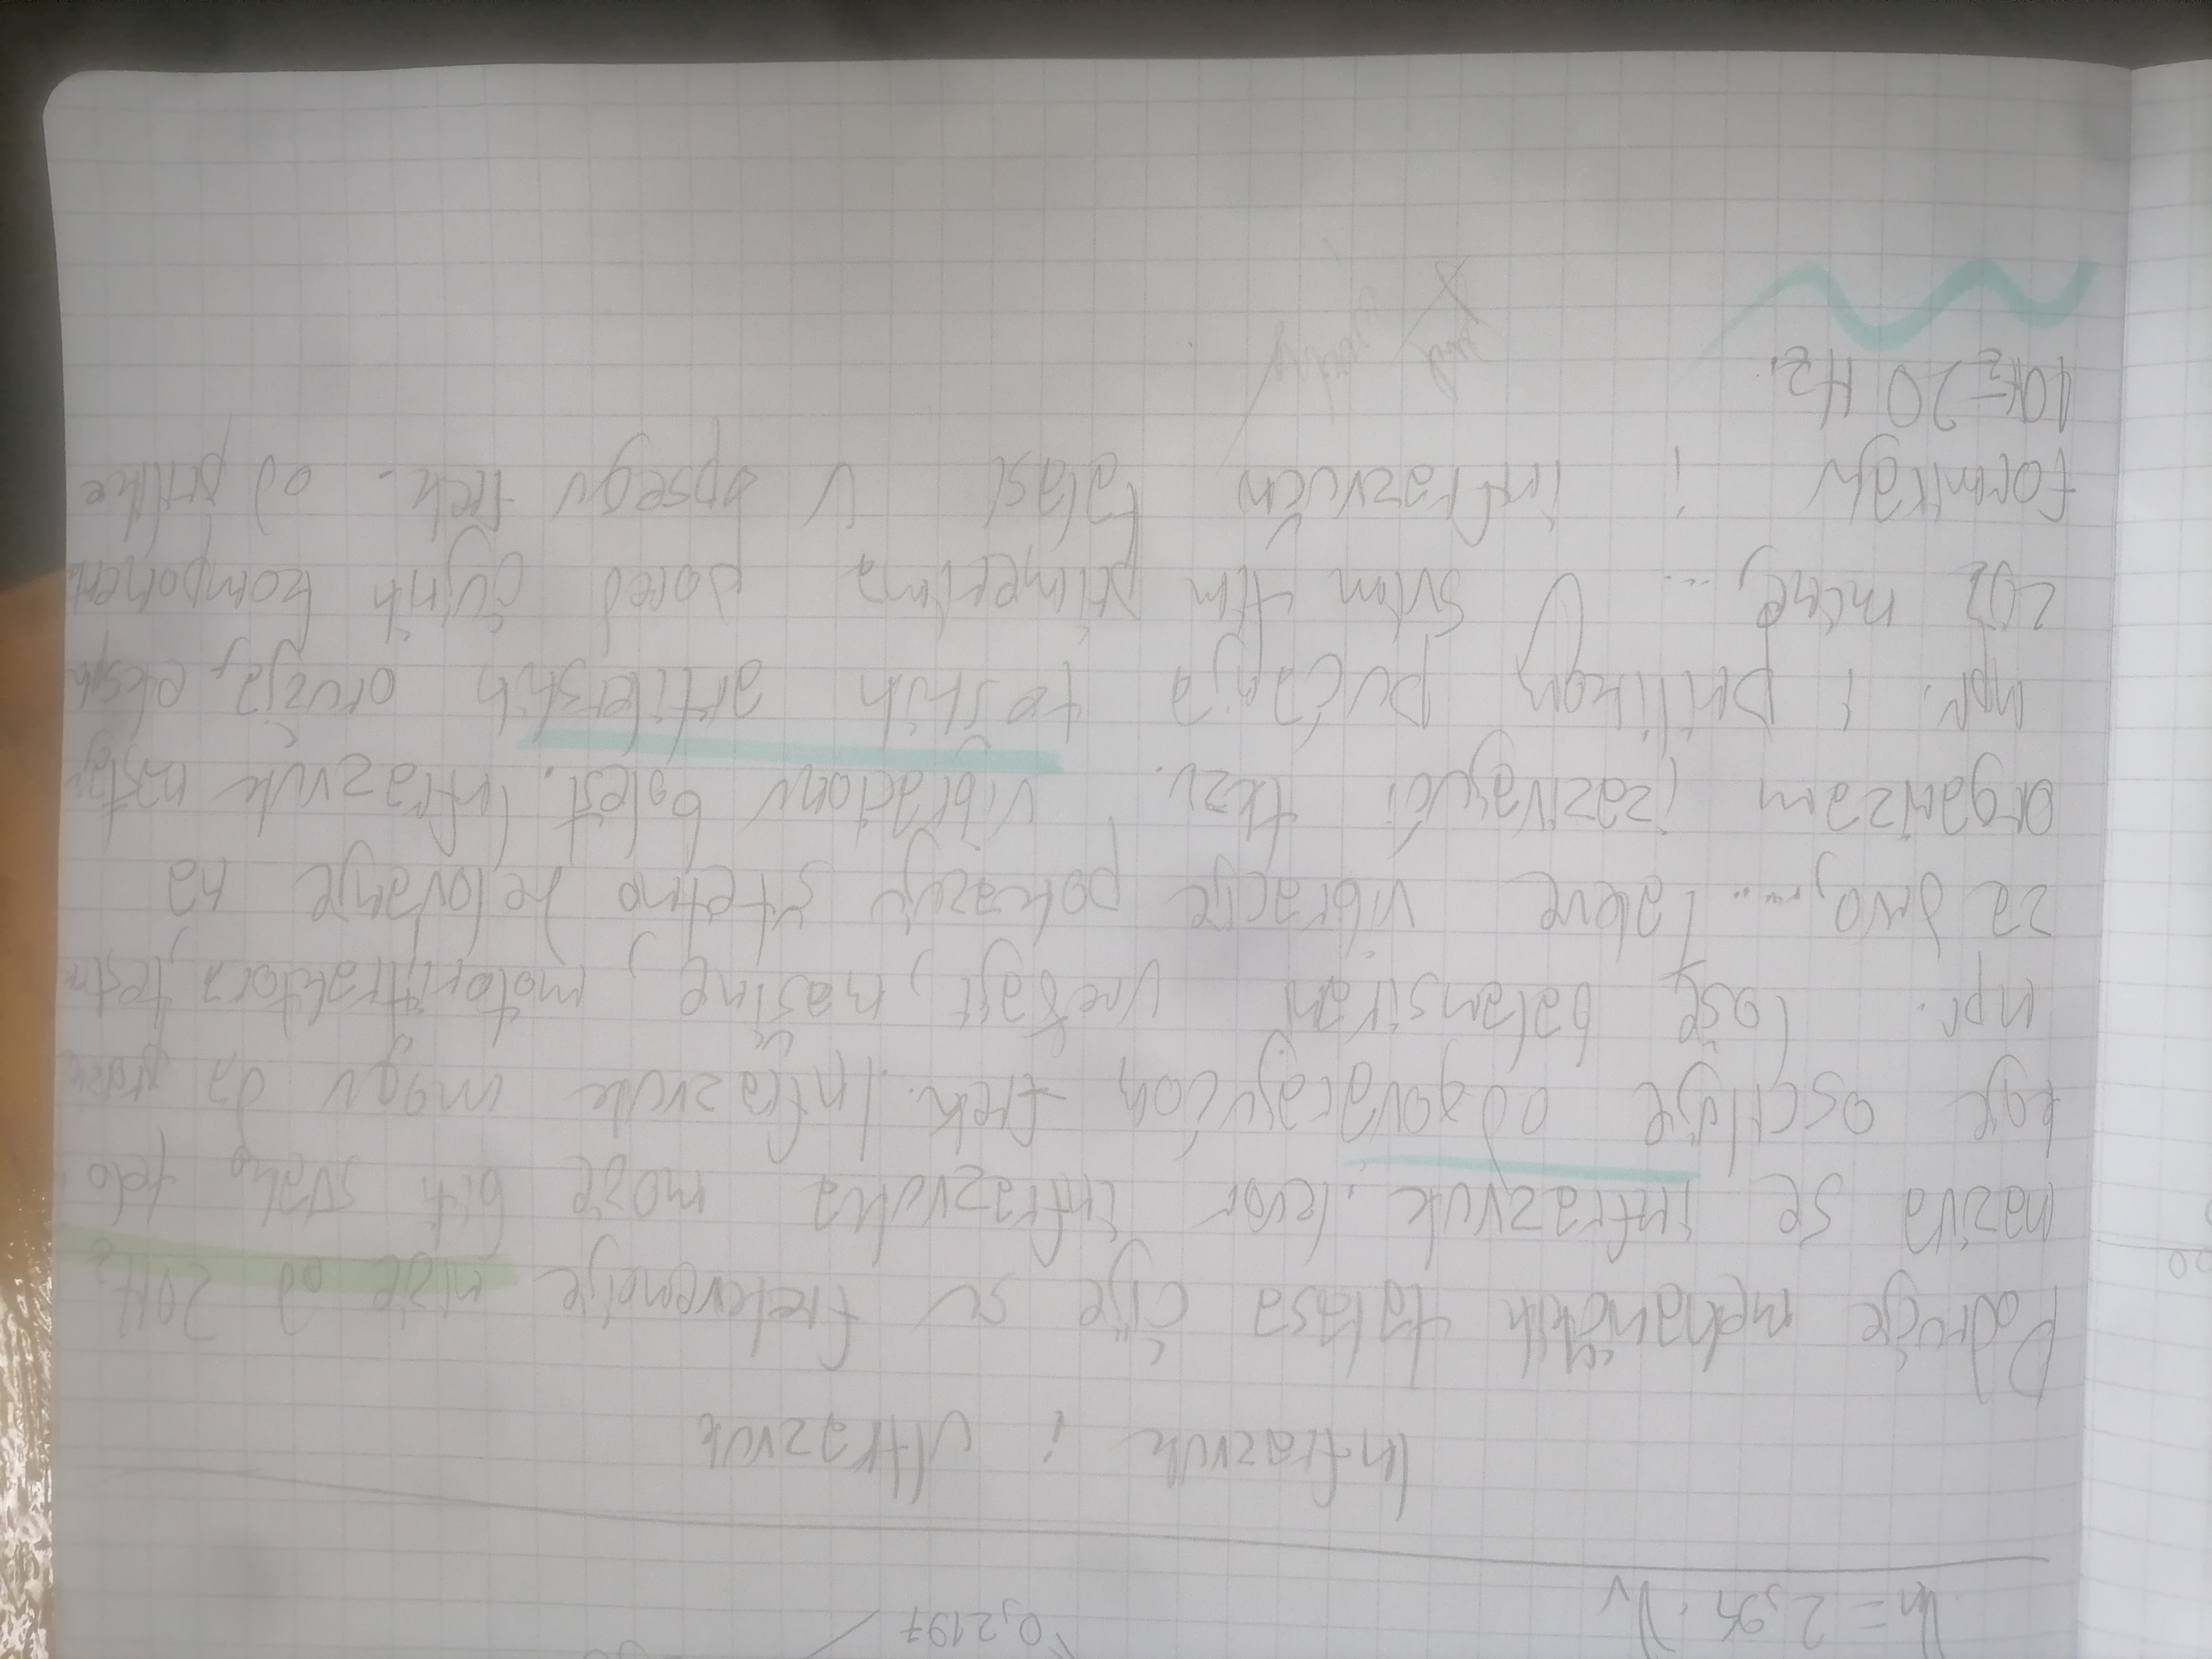 Vn = 2,94 · Vv
0,2197
Infrazvuk i ultrazvuk
Područje mehaničkih talasa čije su frekvencije niže od 20Hz
naziva se infrazvuk. Izvor infrazvuka može biti svako telo
koje osciluje odgovarajućom frek. Infrazvuk mogu da
npr. loše balansirani uređaji, mašine, motori traktora,
za drvo,.... Takve vibracije pokazuju štetno delovanje na
organizam izazivajući tkzv. vibracionu bolest. Infrazvuk
npr. i prilikom pucanja teških artilerskih oružja,
mine,... U svim tim primerima pored čujnih
formiraju i infrazvučni talasi u opsegu frek. od prilike
10Hz-20 Hz.